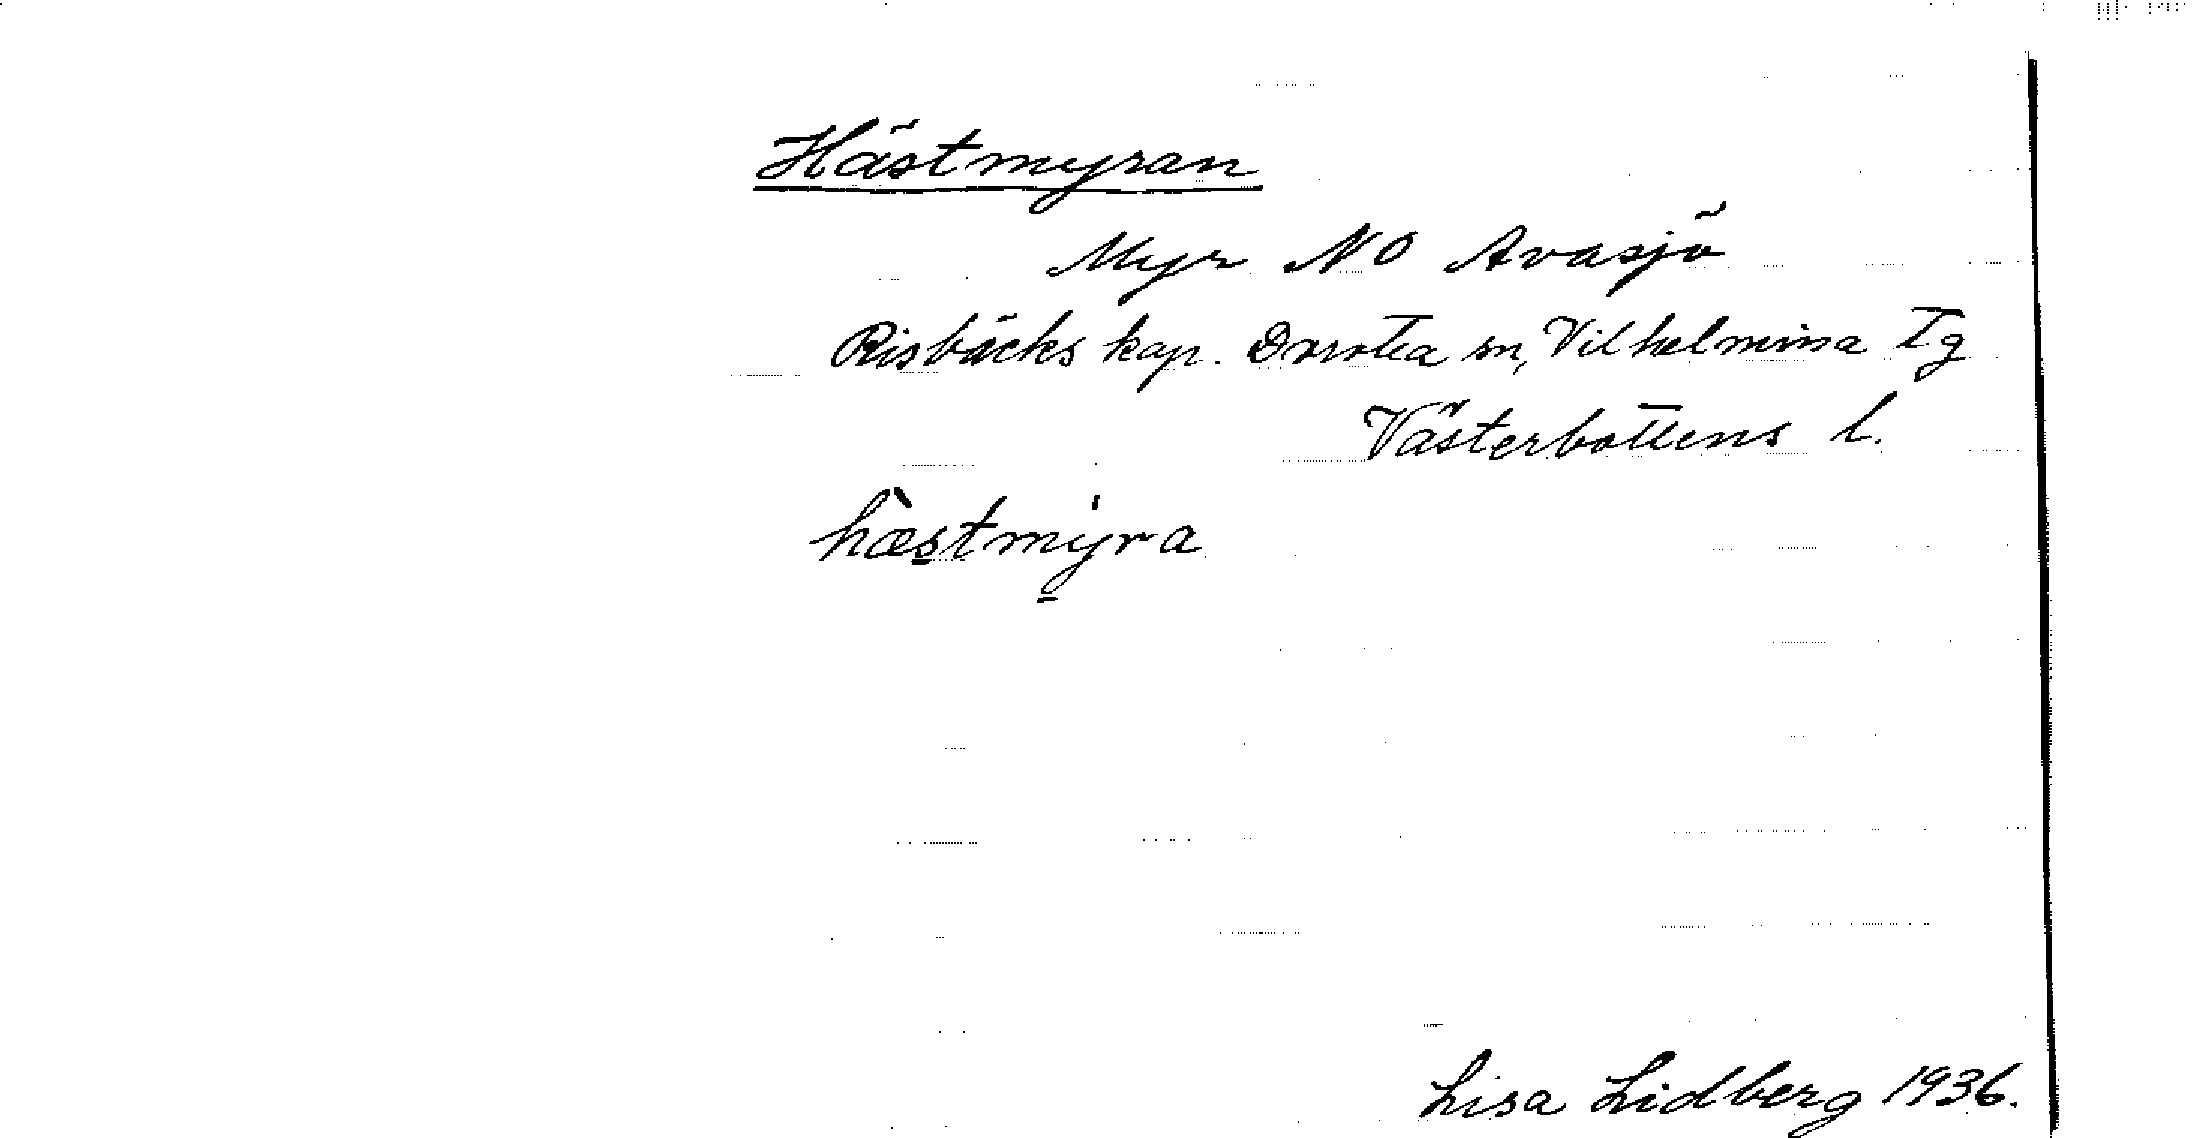 Hästmyran
Myr NO Avasjö
Risbäcks kap. Dorotea sn, Vilhelmina Tg
Västerbottens l.
hæ̀s̠tmy̠̍ra
Lisa Lidberg 1936.